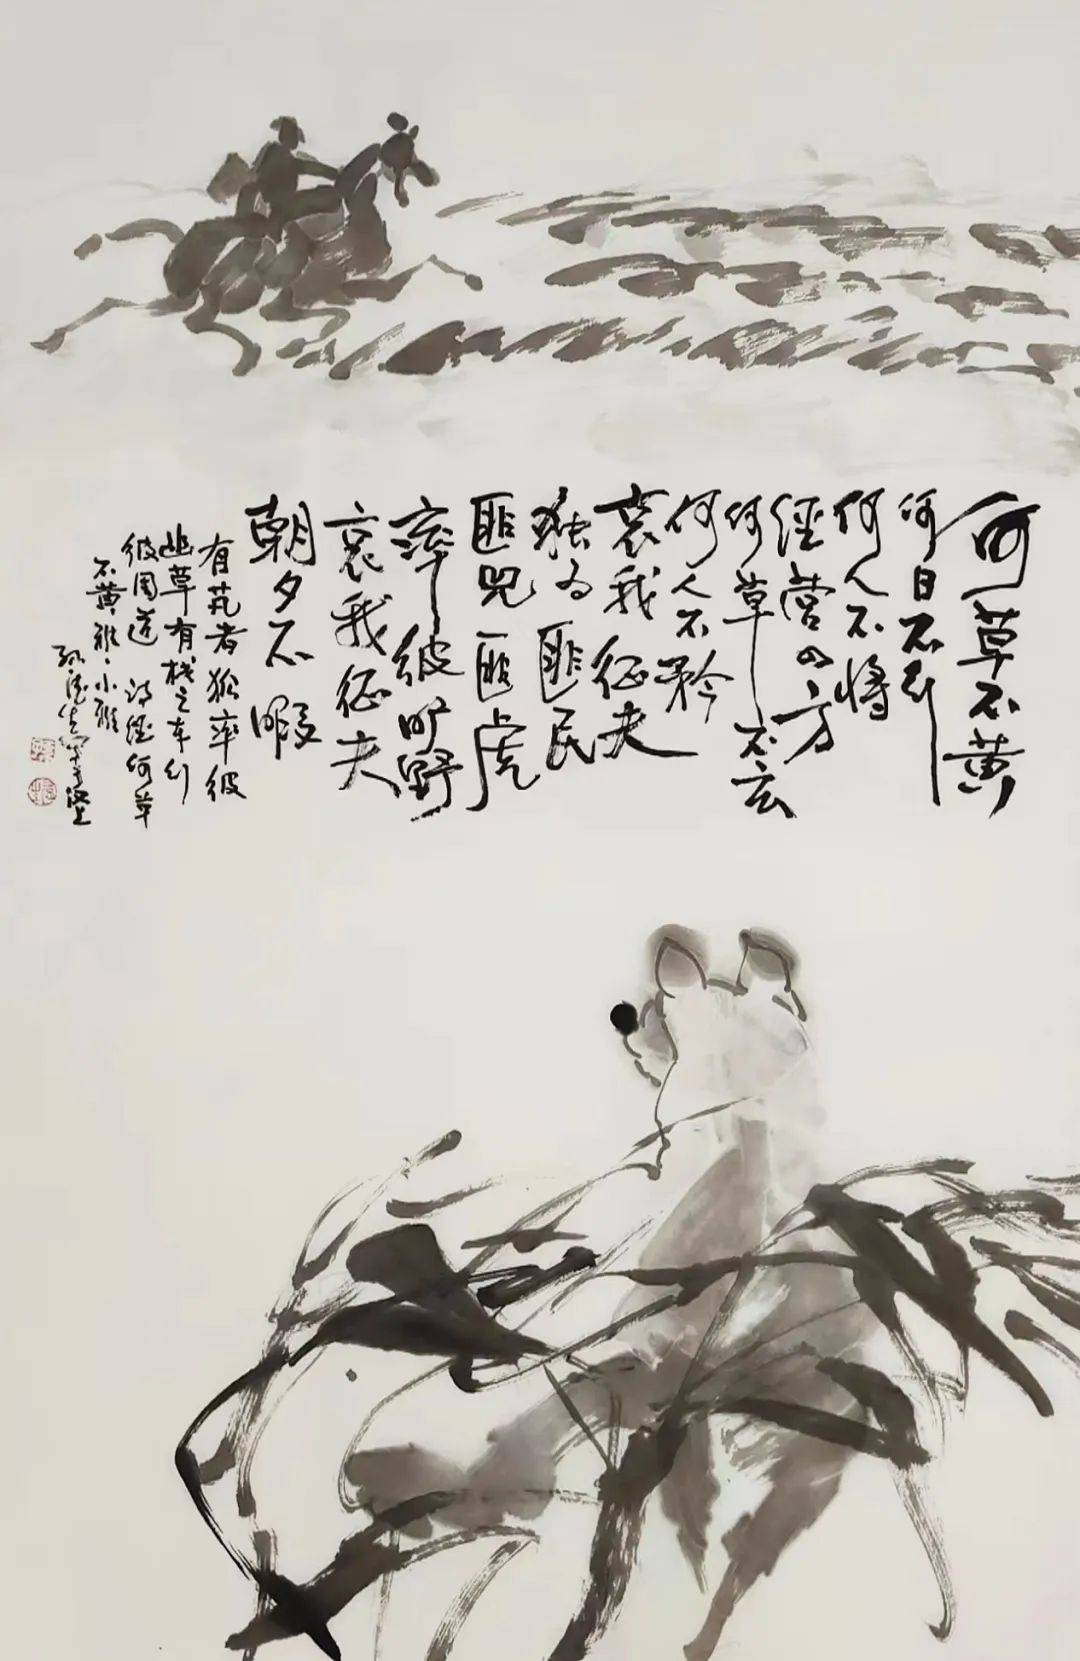 何草不黄
何日不行
何人不将
經营四方
何草不玄
何人不矜
哀我征夫
独为匪民
匪兕匪虎
率彼旷野
哀我征夫
朝夕不暇
有芃者狐率彼
幽草有栈之车行
彼周道 诗經何草
不黄雅·小雅